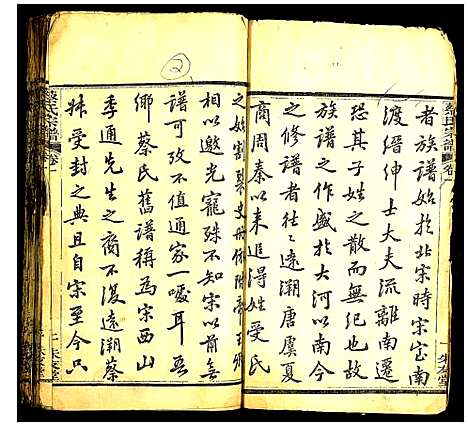 蔡氏宗譜 卷一
者族譜始於北宋時宋室南
渡縉紳士大夫流離南遷
恐其子姓之散而無紀也故
族譜之作盛於大河以南今
之修譜者往往遠溯唐虞夏
商周秦以来追得姓受氏
之始割裂史册附帝王卿
相以邀光寵殊不知宋以前無
譜可攷不值通家一噱耳吾
鄉蔡氏舊譜稱爲宋西山
季通先生之裔不復遠溯蔡
叔受封之典且自宋至今只
蔡氏宗譜 卷一
2